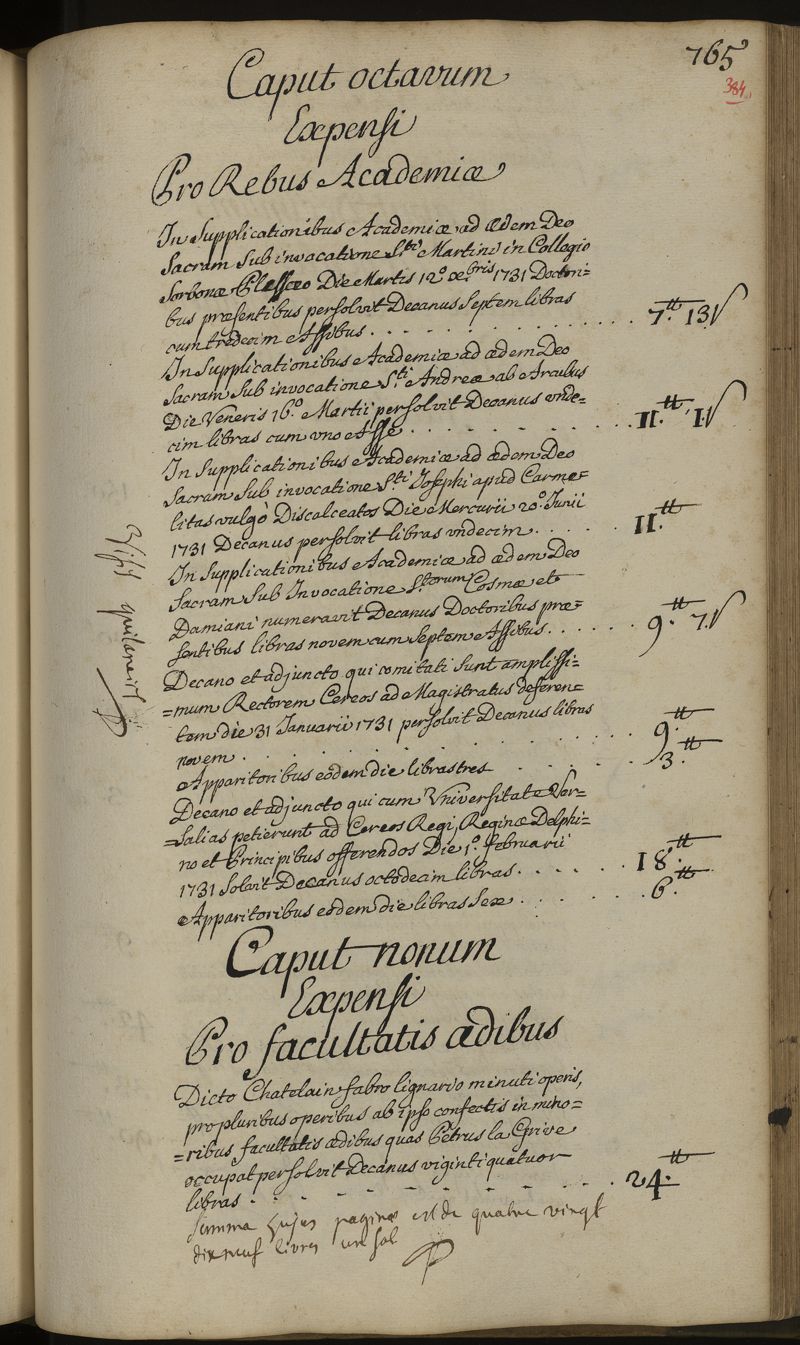 765
384
Caput octavum
Expensi
Pro Rebus Academiæ
In Supplicationibus Academiæ ad ædem Deo
Sacram Sub invocatione Sti Martini in Collegio
Sorbonæ Plessæo Die Martis 12° xbris 1731 Doctori=
bus præsentibus persolvit Decanus Septem libras
cum tredecim Assibus . . . . . . . . . . . . 7.tt 13ſ
In Supplicationibus Academiæ ad ædem Deo
Sacram Sub invocatione Sti Andreæ ab Arcubus
Die Veneris 16.° Martii persolvit Decanus unde=
cim libras cum uno Asse . . . . . . . . . 11.tt 1.ſ
In Supplicationibus Academiæ ad ædem Deo
Sacram Sub invocatione Sti Josephi apud Carme=
litas vulgò Discalceatos Die Mercurii 20.° Junii
1731 Decanus persolvit libras undecim . . . . . 11.tt
In Supplicationibus Academiæ ad ædem Deo
Sacram Sub Invocatione Storum Cosmæ et
Damiani numeravit Decanus Doctoribus præ=
sentibus libras novem cum Septem Assibus . . . . . . 9.tt 7.ſ
Decano et adjuncto qui comitati Sunt amplissi=
=mum Rectorem Cereos ad Magistratus deferen=
tem die 31 Januarii 1731 persolvit Decanus libras
novem . . . . . . . . . . . . . . 9.tt
Apparitoribus eodem die libras tres . . . . . 3.tt
Decano et adjuncto qui cum Universitate Ver=
=salias petierunt ad Cereos Regi, Reginæ Delphi=
no et Principibus offerendos Die 1.° februarii
1731 Solvit Decanus octodecim libras . . . . . . 18.tt
Apparitoribus eodem die libras Sex . . . . . . 6.tt
Caput nonum
Expensi
Pro facultatis ædibus
Dicto Chatelain fabro lignario minuti operis,
pro pluribus operibus ab ipso confectis in mino=
=ribus facultatis ædibus quas Petrus la Grive
occupat persolvit Decanus viginti quatuor
libras . . . . . . . . . . . . 24.tt
Summa hujus paginæ est de quatre vingt
dix neuf livres un sol